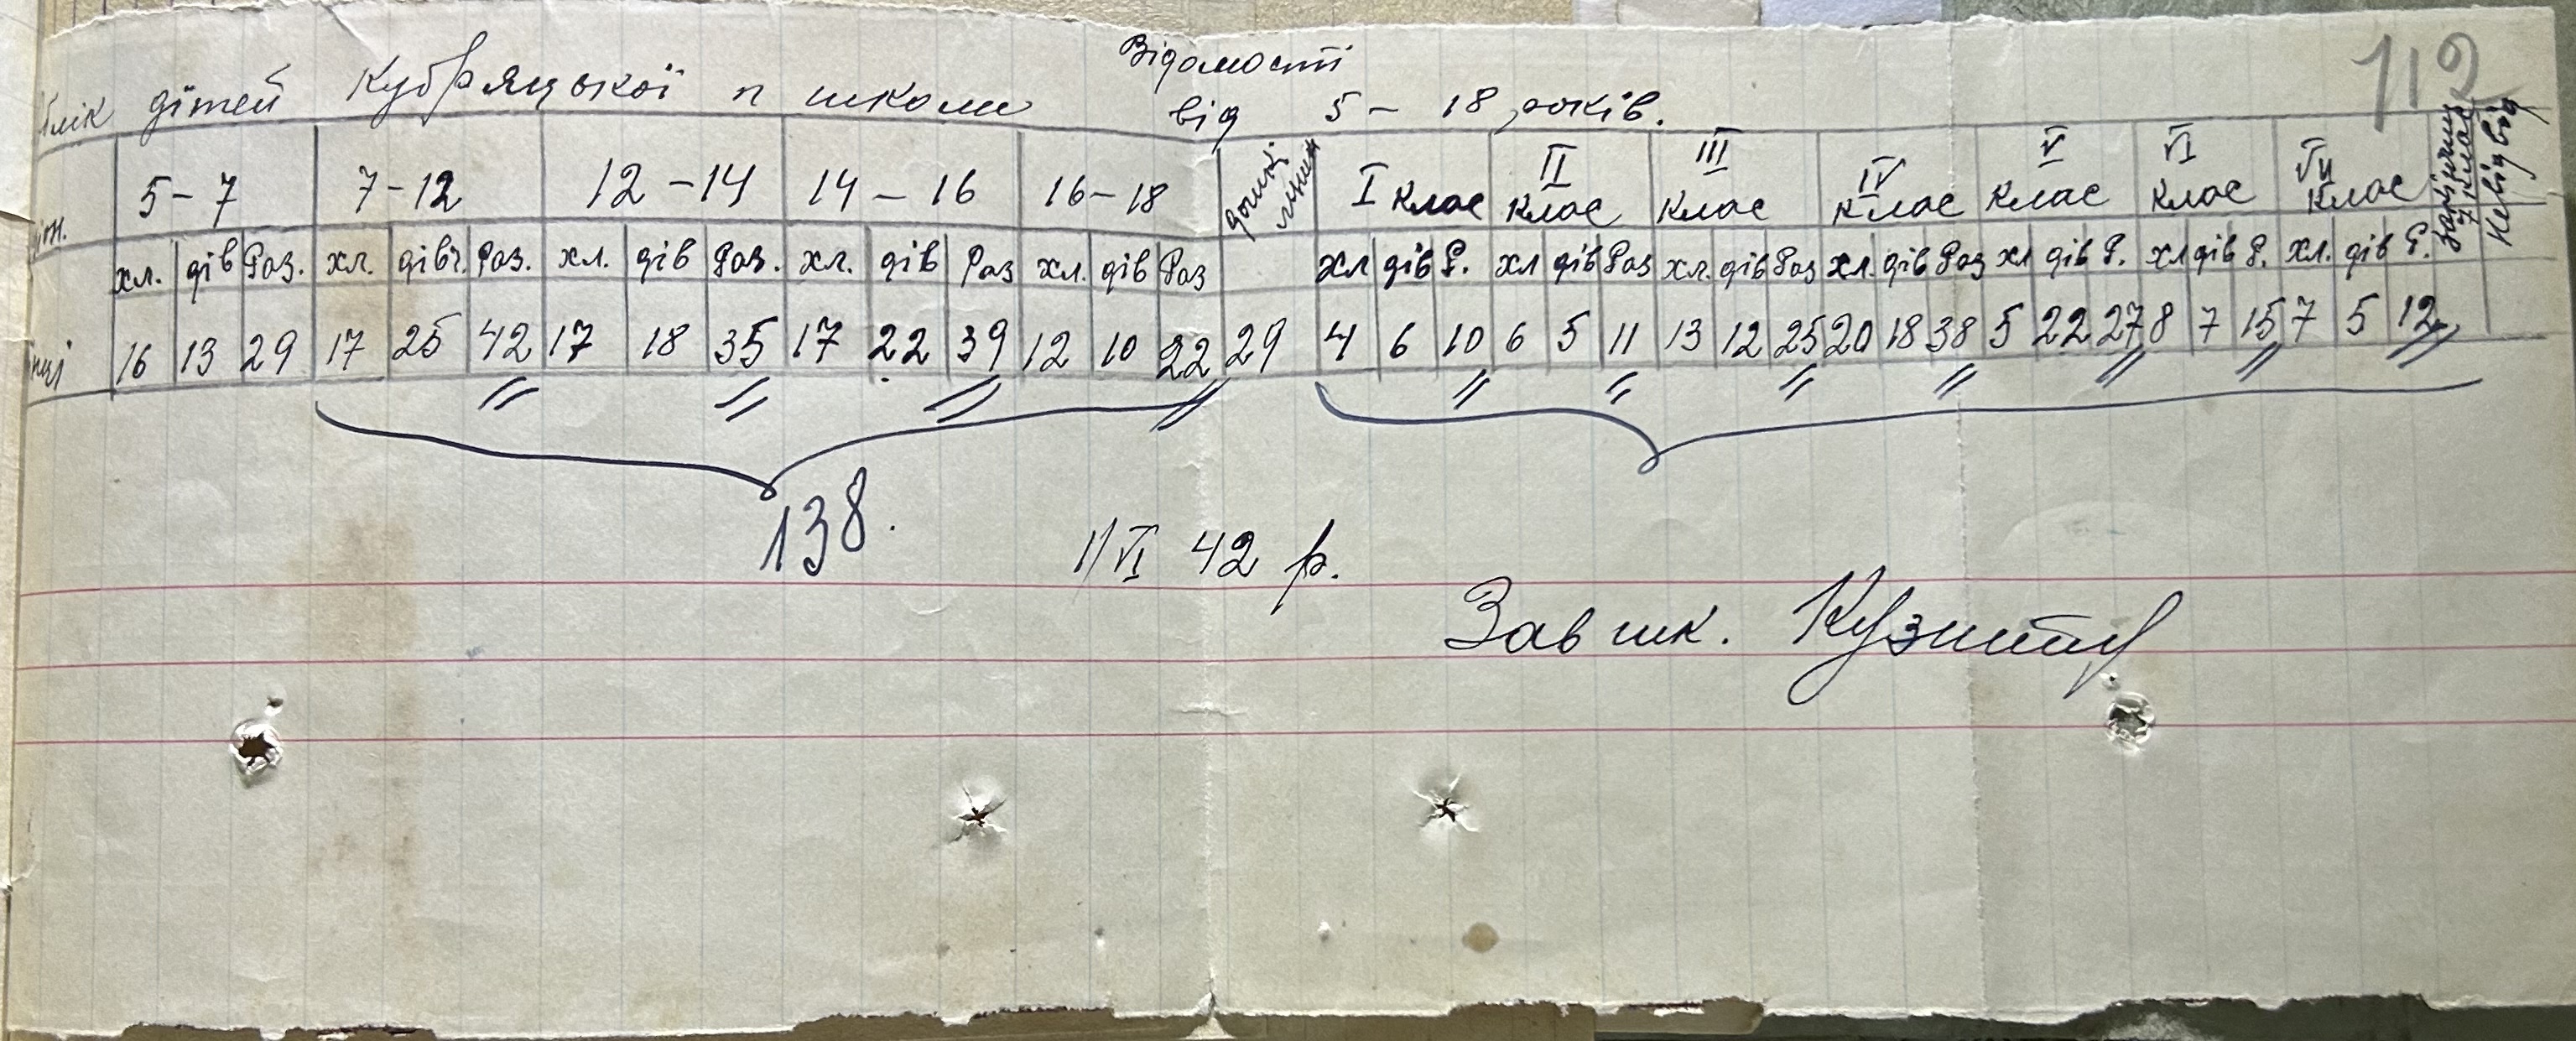 Відомості
112
облік дітей Кубряцької п школи від 5 – 18 років.
5 – 7 7 – 12 12 – 14 14 – 16 16 – 18 I клас II клас III клас IV клас V клас VI клас VII клас закінчили 7 клас Невідвід
хл. дів Раз. хл. дівч. Раз. хл. дів Раз. хл. дів Раз хл. дів Раз хл дів Р. хл дів Раз хл. дів Раз хл. дів Раз хл дів Р. хл дів Р. хл. дів Р.
16 13 29 17 25 42 17 18 35 17 22 39 12 10 22 29 4 6 10 6 5 11 13 12 25 20 18 38 5 22 27 8 7 15 7 5 12
138.
1/VI 42 р.
Зав шк.